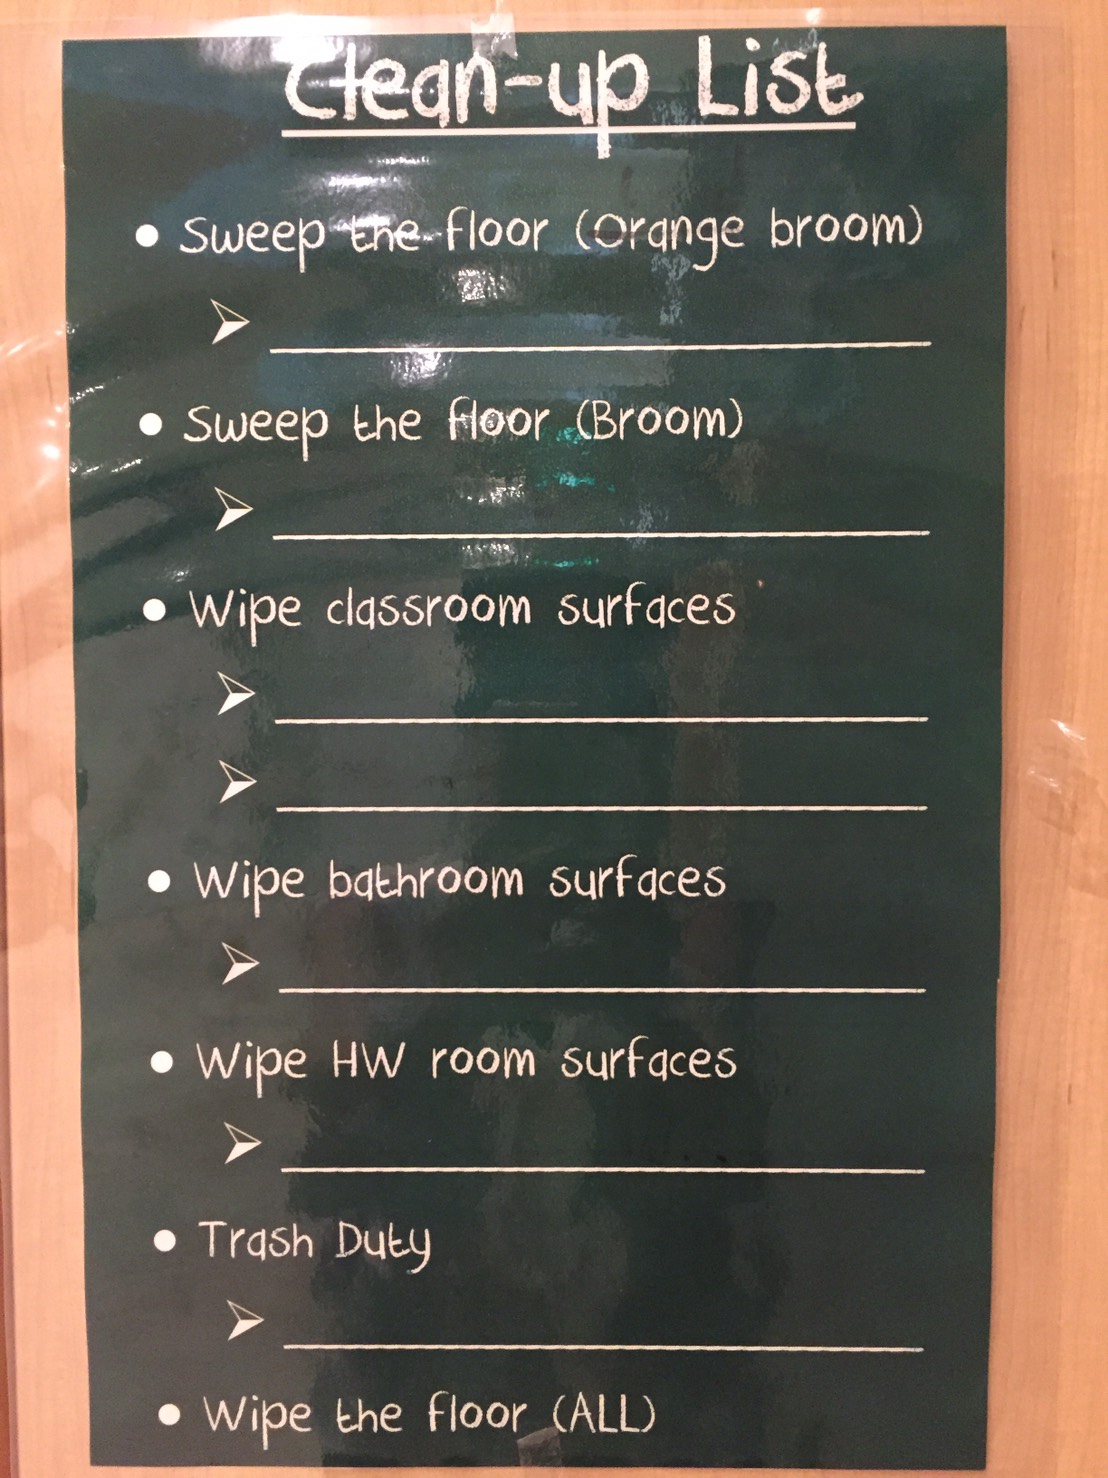 Clean-up List
• Sweep the floor (Orange broom)
➢ ____________________
• Sweep the floor (Broom)
➢ ____________________
• Wipe classroom surfaces
➢ ____________________
➢ ____________________
• Wipe bathroom surfaces
➢ ____________________
• Wipe HW room surfaces
➢ ____________________
• Trash Duty
➢ ____________________
• Wipe the floor (ALL)